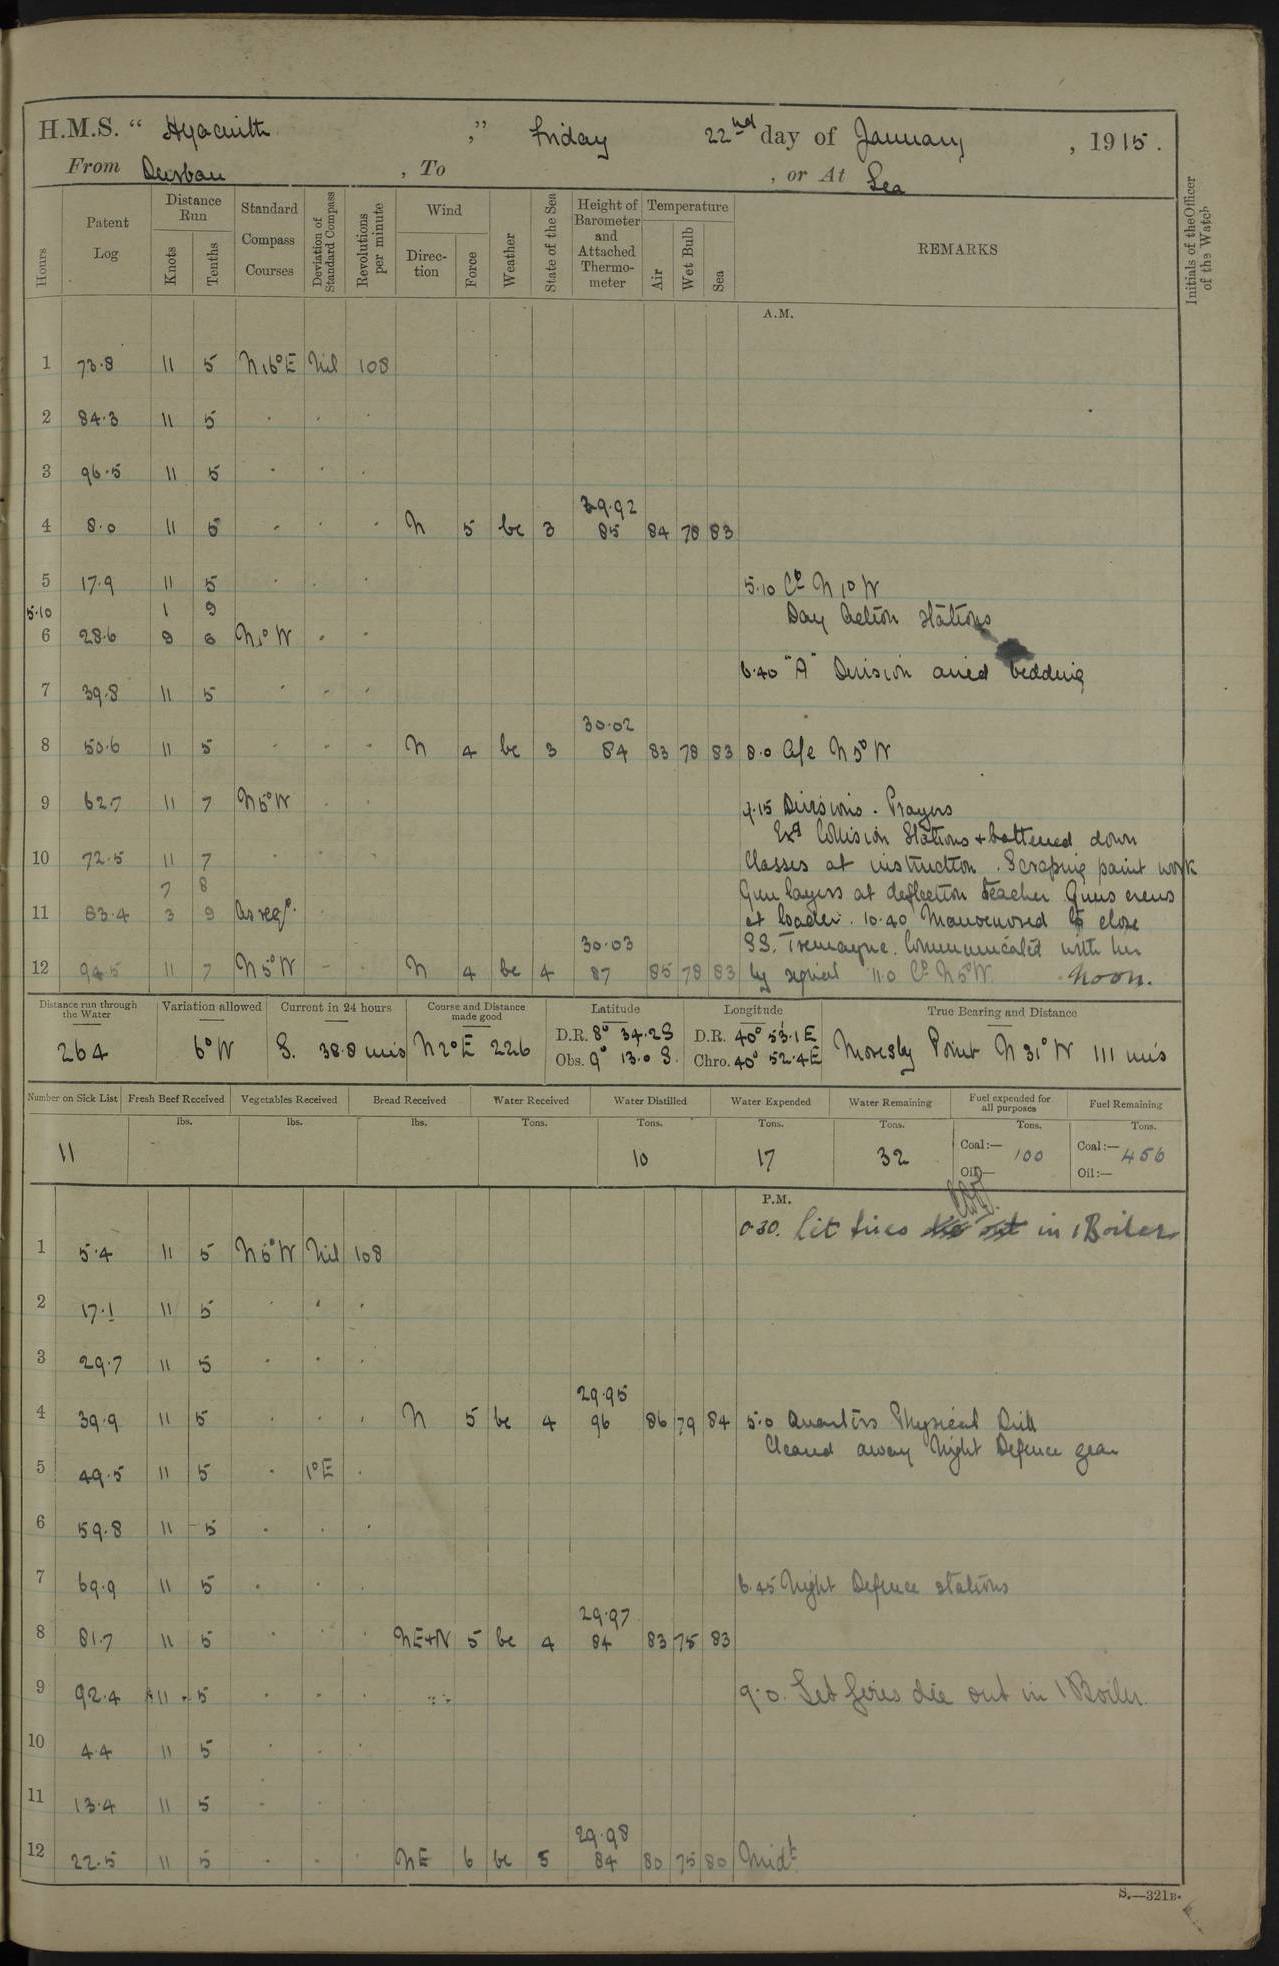 H.M.S. " Hyacinth ," Friday 22nd day of January , 1915.
From Durban , To , or At Sea
Hours
Patent Log
Distance Run
Knots
Tenths
Standard Compass Courses
Deviation of Standard Compass
Revolutions per minute
Wind
Direction
Force
Weather
State of the Sea
Height of Barometer and Attached Thermometer
Temperature
Air
Wet Bulb
Sea
REMARKS
Initials of the Officer of the Watch
A.M.
1 73.8 11 5 N16°E Nil 108
2 84.3 11 5 " " "
3 96.5 11 5 " " "
29.92
4 8.0 11 5 " " " N 5 bc 3 85 84 78 83
5 17.9 11 5 " " " 5.10 Co N1°W
5.10 1 9 Day Action Stations
6 28.6 9 6 N1°W " "
6.40 "A" Division aired bedding
7 39.8 11 5 " " "
30.02
8 50.6 11 5 " " " N 4 bc 3 84 83 78 83 8.0 A/c N5°W
9 62.7 11 7 N5°W " " 9.15 Divisions. Prayers
Exd Collision Stations + battened down
10 72.5 11 7 " " " Classes at instruction. Scraping paint work
7 8 Gun layers at deflection teacher Guns crews
11 83.4 3 9 As reqd. at loader. 10.40 Manoeuvred to close
30.03 SS. Tremayne. Communicated with her
12 94.5 11 7 N5°W " " N 4 bc 4 87 85 78 83 by signal 11.0 Co N5°W. Noon.
Distance run through the Water
264
Variation allowed
6°W
Current in 24 hours
S. 38.8 mis
Course and Distance made good
N2°E 226
Latitude
D.R. 8° 34.2 S
Obs. 9° 13.0 S.
Longitude
D.R. 40° 53.1 E
Chro. 40° 52.4 E
True Bearing and Distance
Moresby Point N 31° W 111 mis
Number on Sick List
11
Fresh Beef Received
lbs.
Vegetables Received
lbs.
Bread Received
lbs.
Water Received
Tons.
Water Distilled
Tons.
10
Water Expended
Tons.
17
Water Remaining
Tons.
32
Fuel expended for all purposes
Tons.
Coal:— 100
Oil:—
Fuel Remaining
Tons.
Coal:— 456
Oil:—
P.M.
0.30. Lit fires in 1 Boiler
1 5.4 11 5 N5°W Nil 108
2 17.1 11 5 " " "
3 29.7 11 5 " " "
29.95
4 39.9 11 5 " " " N 5 bc 4 96 86 79 84 5.0 Quarters Physical Drill
Cleared away Night Defence gear
5 49.5 11 5 " 1°E "
6 59.8 11 5 " " "
7 69.9 11 5 " " " 6.45 Night Defence stations
29.97
8 81.7 11 5 " " " NE+N 5 bc 4 84 83 75 83
9 92.4 11 5 " " " 9.0. Let fires die out in 1 Boiler.
10 4.4 11 5 " " "
11 13.4 11 5 " " "
29.98
12 22.5 11 5 " " " NE 6 bc 5 84 80 75 80 Midt
S.—321B.